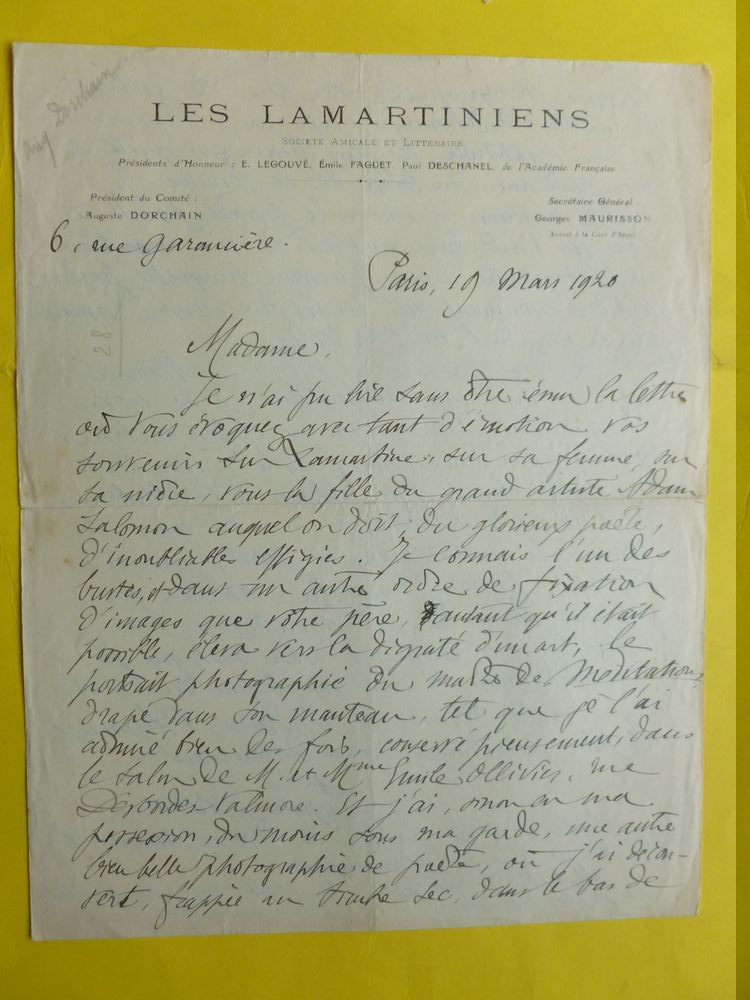 Aug Dorchain
LES LAMARTINIENS
SOCIÉTÉ AMICALE ET LITTÉRAIRE
Présidents d'Honneur : E. LEGOUVÉ, Émile FAGUET, Paul DESCHANEL, de l'Académie Française
Président du Comité :
Auguste DORCHAIN
Secrétaire Général :
Georges MAURISSON
Avocat à la Cour d'Appel
6, rue Garancière.
Paris, 19 Mars 1920
28
Madame,
Je n'ai pu lire sans être ému la lettre
où vous évoquez avec tant d'émotion vos
souvenirs sur Lamartine, sur sa femme, sur
sa nièce, vous la fille du grand artiste Adam
Salomon auquel on doit, du glorieux poète,
d'inoubliables effigies. Je connais l'un des
bustes, et dans un autre ordre de fixation
d'images que votre père, autant qu'il était
possible, éleva vers la dignité d'un art, le
portrait photographié du maître des Méditations,
drapé dans son manteau, tel que je l'ai
admiré bien des fois, conservé pieusement, dans
le salon de M. et Mme Emile Ollivier, rue
Desbordes-Valmore. Et j'ai, sinon en ma
possession, du moins sous ma garde, une autre
bien belle photographie de poète, où j'ai décou-
vert, frappée un timbre sec, dans le bas de